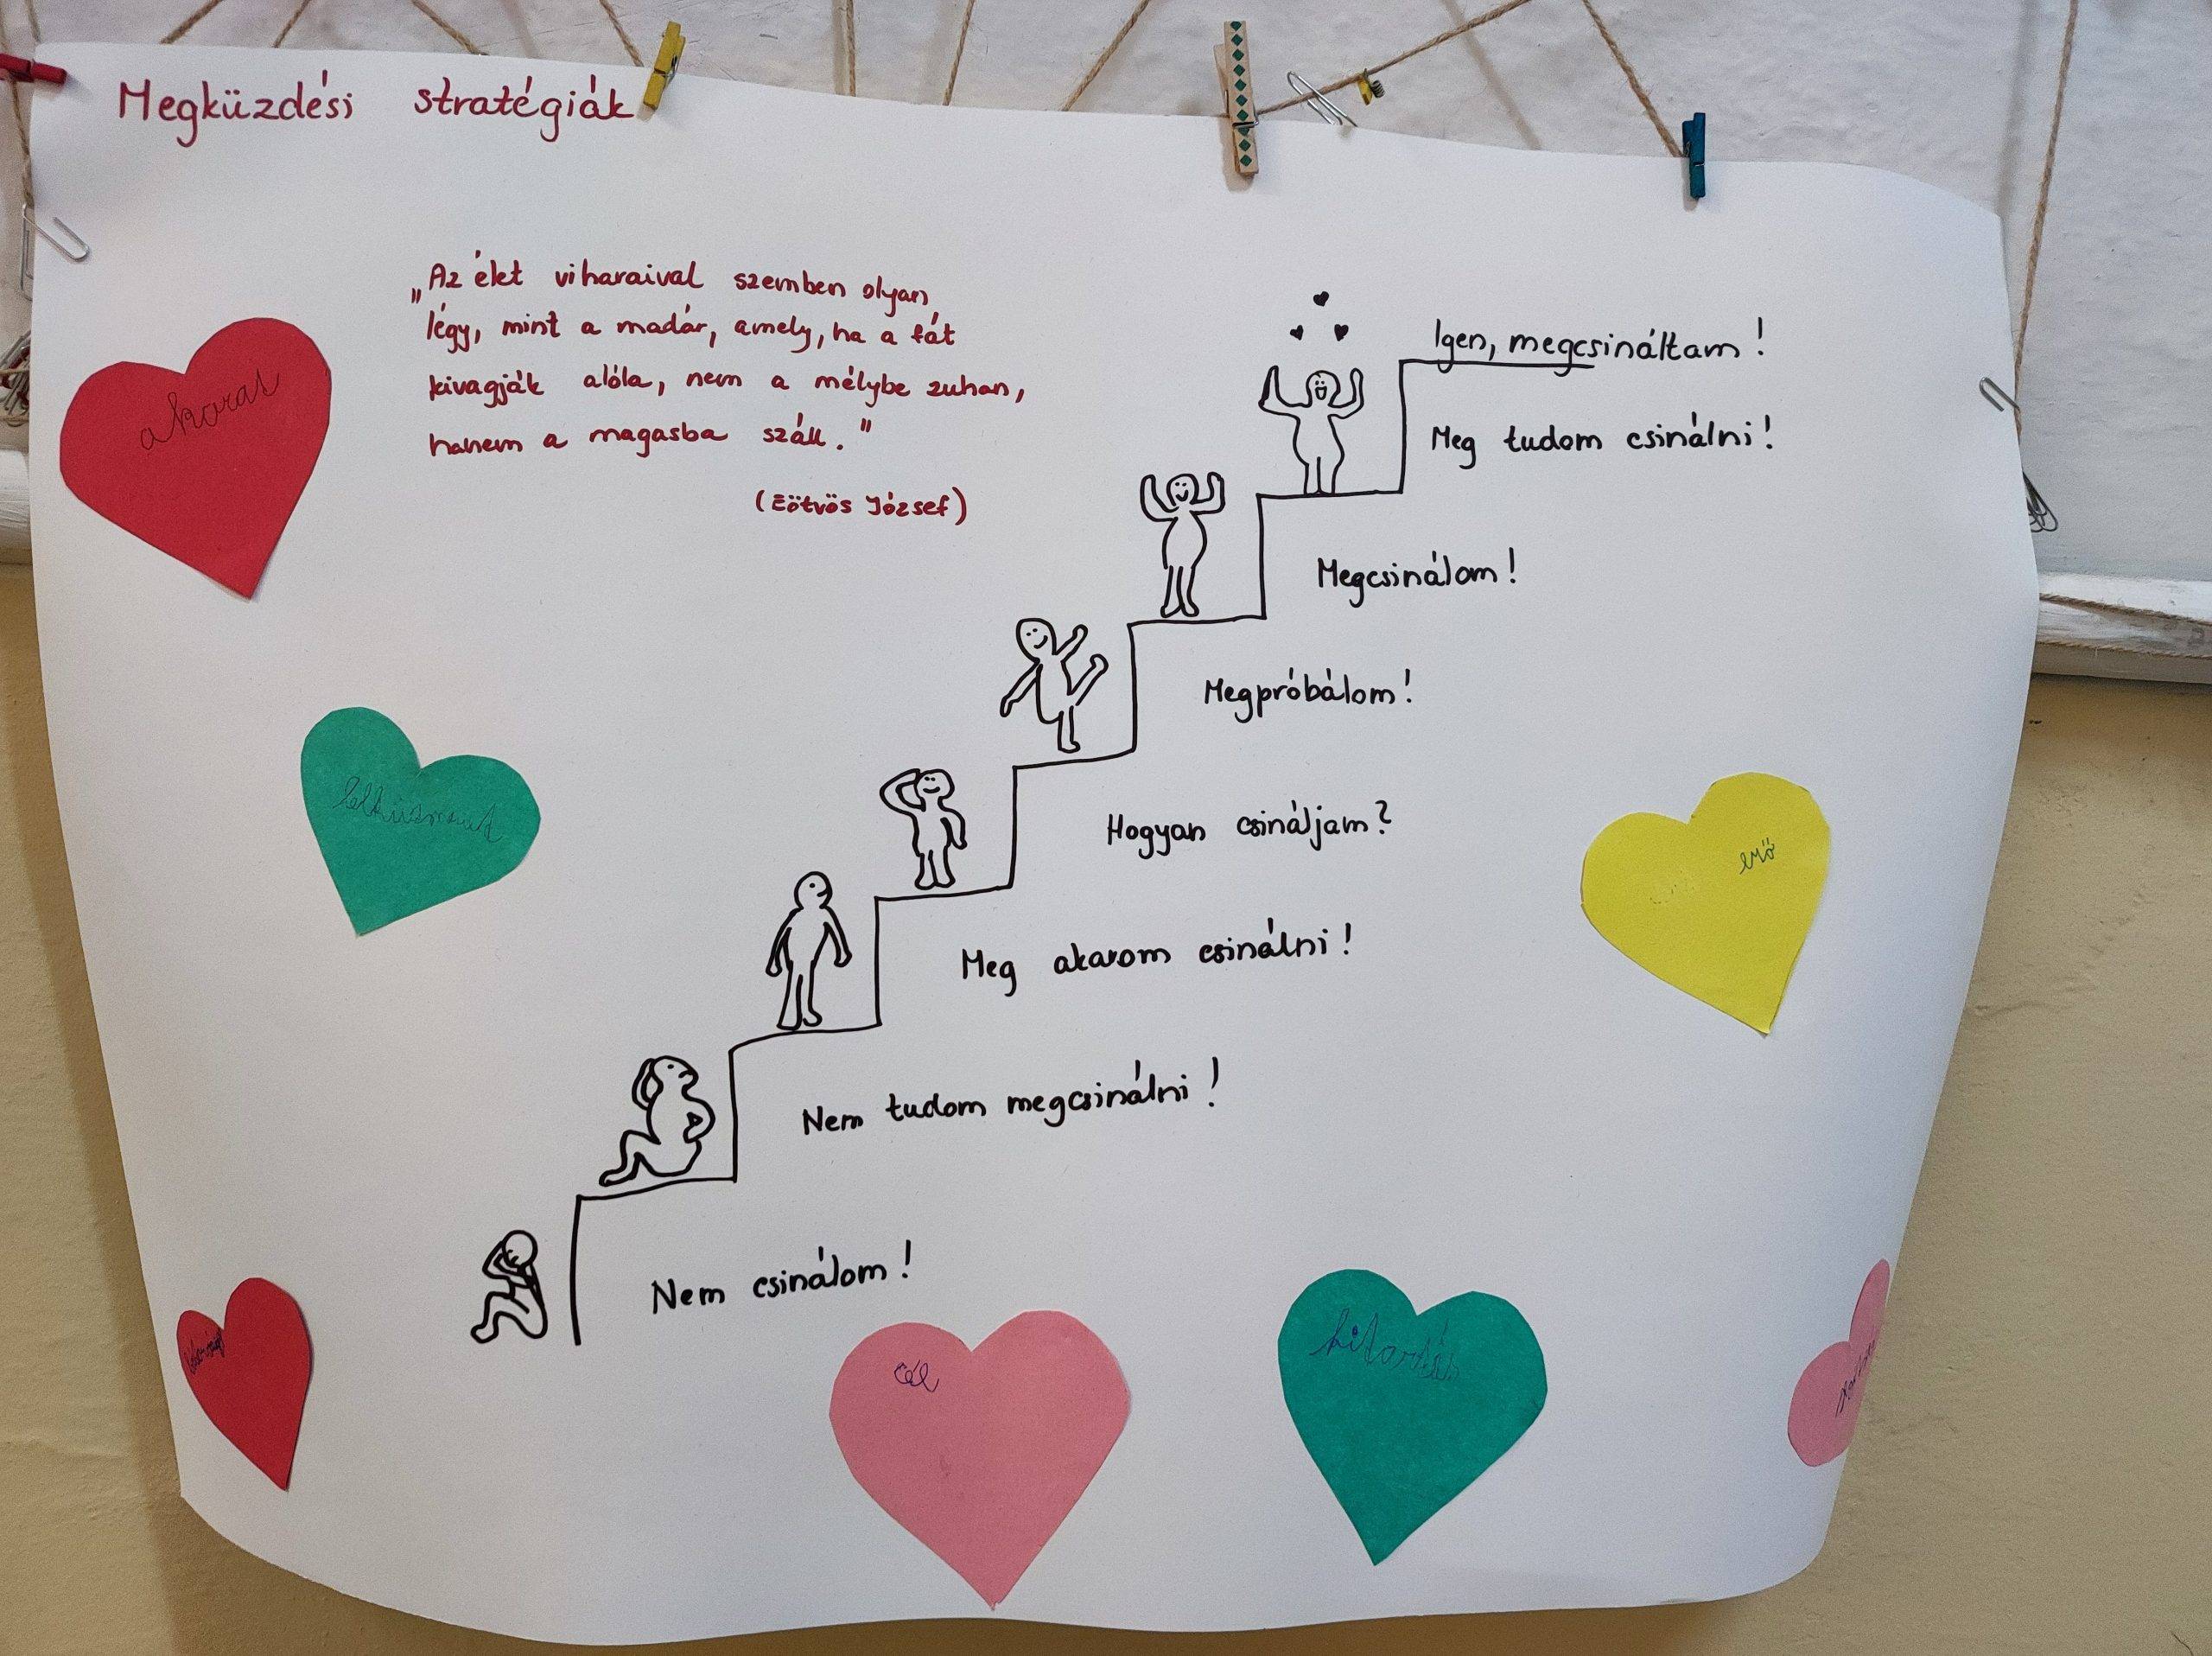 Megküzdési stratégiák
„Az élet viharaival szemben olyan
légy, mint a madár, amely, ha a fát
kivagják alóla, nem a mélybe zuhan,
hanem a magasba száll."
(Eötvös József)
Igen, megcsináltam!
Meg tudom csinálni!
Megcsinálom!
Megpróbálom!
Hogyan csináljam?
Meg akarom csinálni!
Nem tudom megcsinálni!
Nem csinálom!
akarat
erő
cél
kitartás